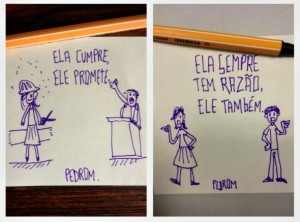 ELA CUMPRE,
ELE PROMETE.
PEDROM.
ELA SEMPRE
TEM RAZÃO,
ELE TAMBÉM.
PEDROM